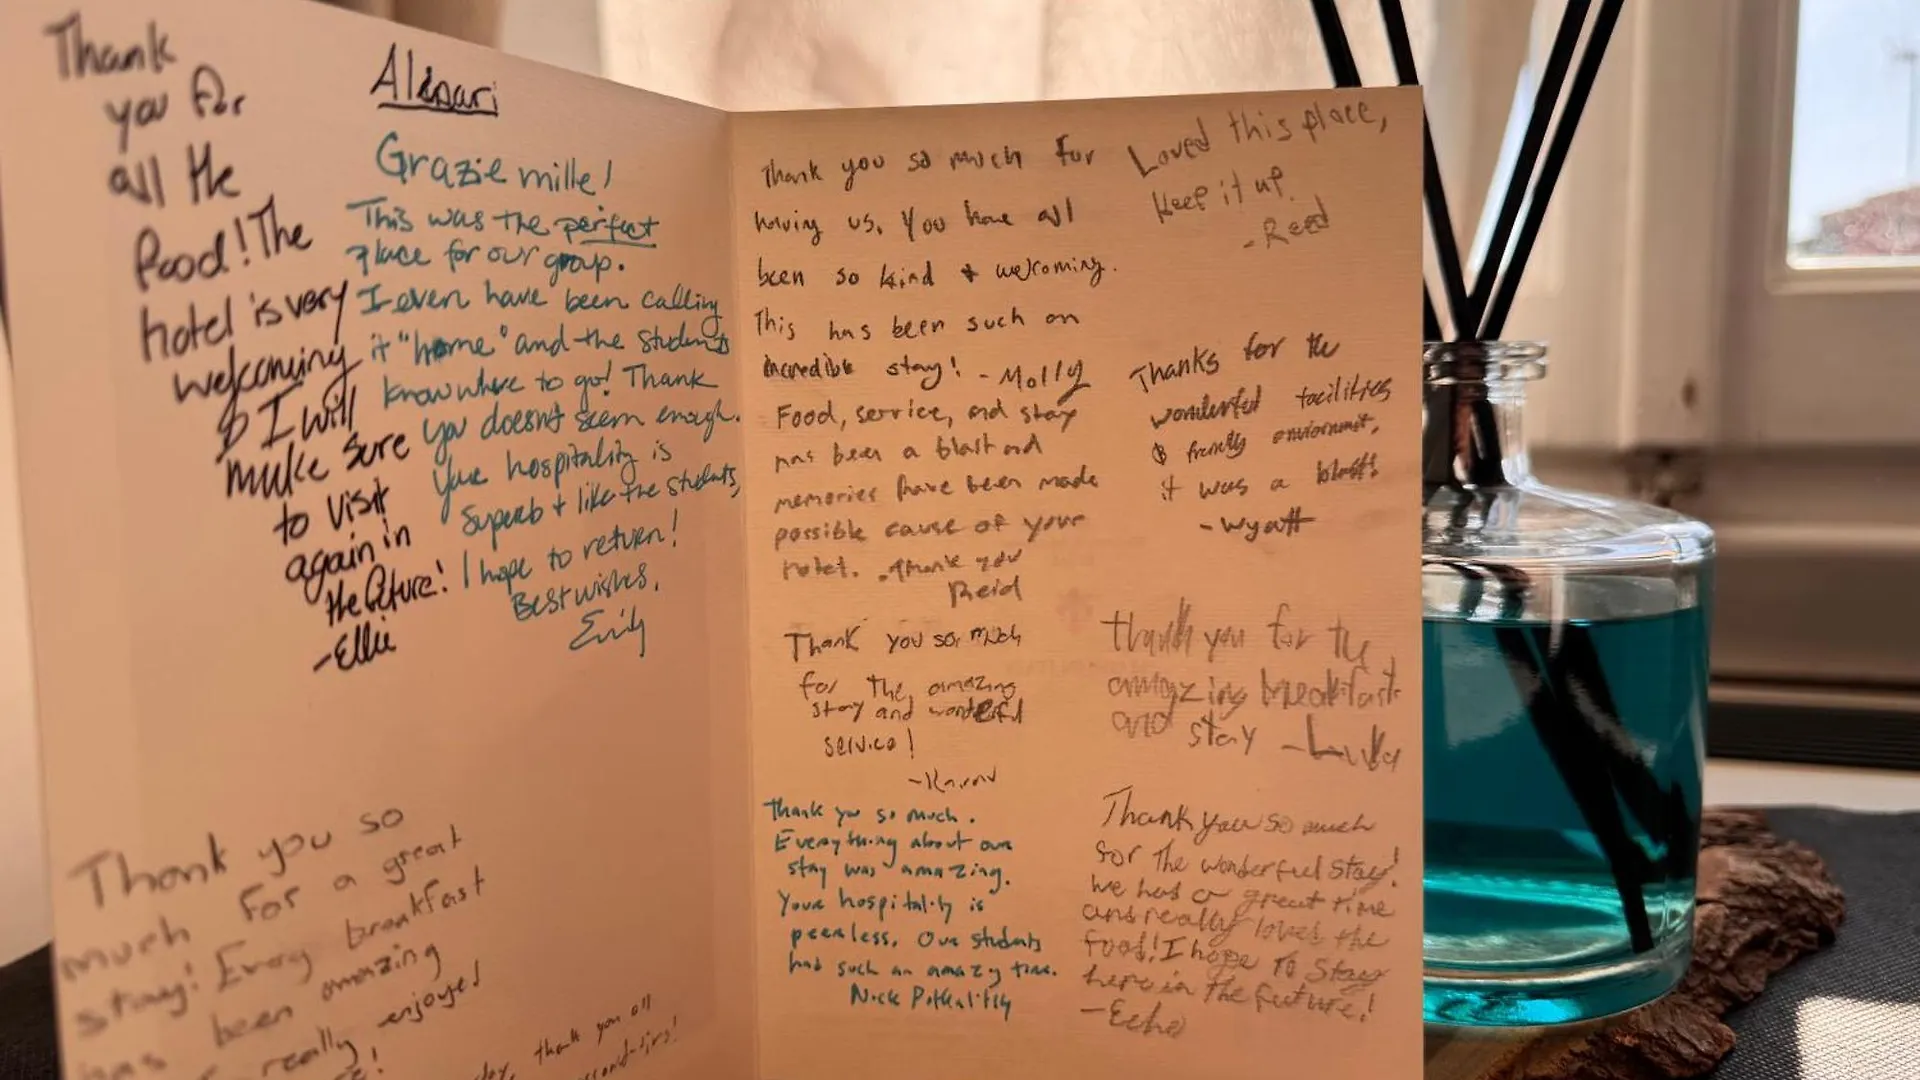 Thank
you for
all the
food! The
hotel is very
welcoming
& I will
make sure
to visit
again in
the future!
-Ellie
Grazie mille!
This was the perfect
place for our group.
I even have been calling
it "home" and the students
know where to go! Thank
you doesn't seem enough.
Your hospitality is
superb + like the students,
I hope to return!
Best wishes,
Emily
Thank you so
much for a great
stay! Every breakfast
has been amazing
really enjoye
thank you all
Thank you so much for
having us. You have all
been so kind & welcoming.
This has been such an
incredible stay! - Molly
Food, service, and stay
has been a blast and
memories have been made
possible cause of your
hotel. Thank you
Reid
Thank you so much
for the amazing
stay and wonderful
service!
Thank you so much.
Everything about our
stay was amazing.
Your hospitality is
peerless. Our students
had such an amazing time.
Nick
Loved this place,
keep it up.
-Reed
Thanks for the
wonderful facilities
& friendly enviornment,
it was a blast!
-Wyatt
Thank you for the
amazing breakfast
and stay -Luka
Thank you so much
for the wonderful stay!
we had a great time
and really loved the
food! I hope to stay
here in the future!
-Echo